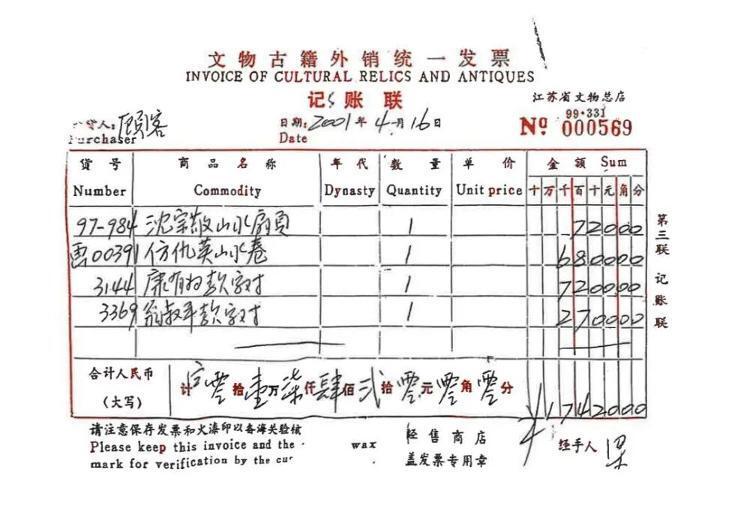 文物古籍外销统一发票
INVOICE OF CULTURAL RELICS AND ANTIQUES
记账联
江苏省文物总店
99·331
顾客
Purchaser
日期: 2001年4月16日
Date
№ 000569
货号 商品名称 年代 数量 单价 金额 Sum
Number Commodity Dynasty Quantity Unit price 十万千百十元角分
97-984 沈宗敬山水扇页 1 72000
00391 仿仇英山水卷 1 680000
3144 康有为款字对 1 720000
3369 翁叔平款字对 1 270000
合计人民币
(大写)
计 零拾壹万柒仟肆佰弍拾零元零角零分
¥1742000
第三联 记账联
请注意保存发票和火漆印以备海关验核
Please keep this invoice and the wax
mark for verification by the
经售商店
盖发票专用章
经手人 梁